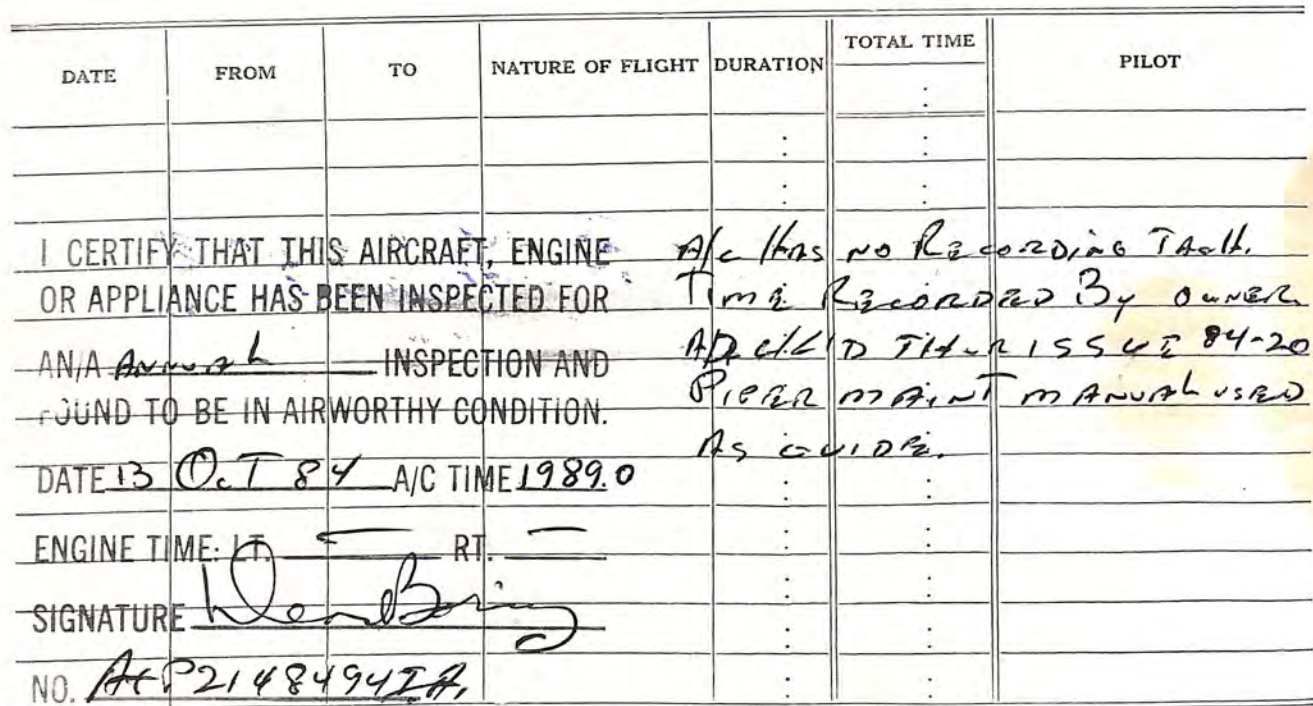 DATE FROM TO NATURE OF FLIGHT DURATION TOTAL TIME PILOT
I CERTIFY THAT THIS AIRCRAFT, ENGINE
OR APPLIANCE HAS BEEN INSPECTED FOR
AN/A Annual INSPECTION AND
FOUND TO BE IN AIRWORTHY CONDITION.
DATE 13 OCT 84 A/C TIME 1989.0
ENGINE TIME: LT. — RT. —
SIGNATURE
NO. A+P2148494IA.
A/c HAS NO RECORDING TACH.
TIME RECORDED By OWNER.
AD C/K'D THUR ISSUE 84-20
PIPER MAINT MANUAL USED
AS GUIDE.